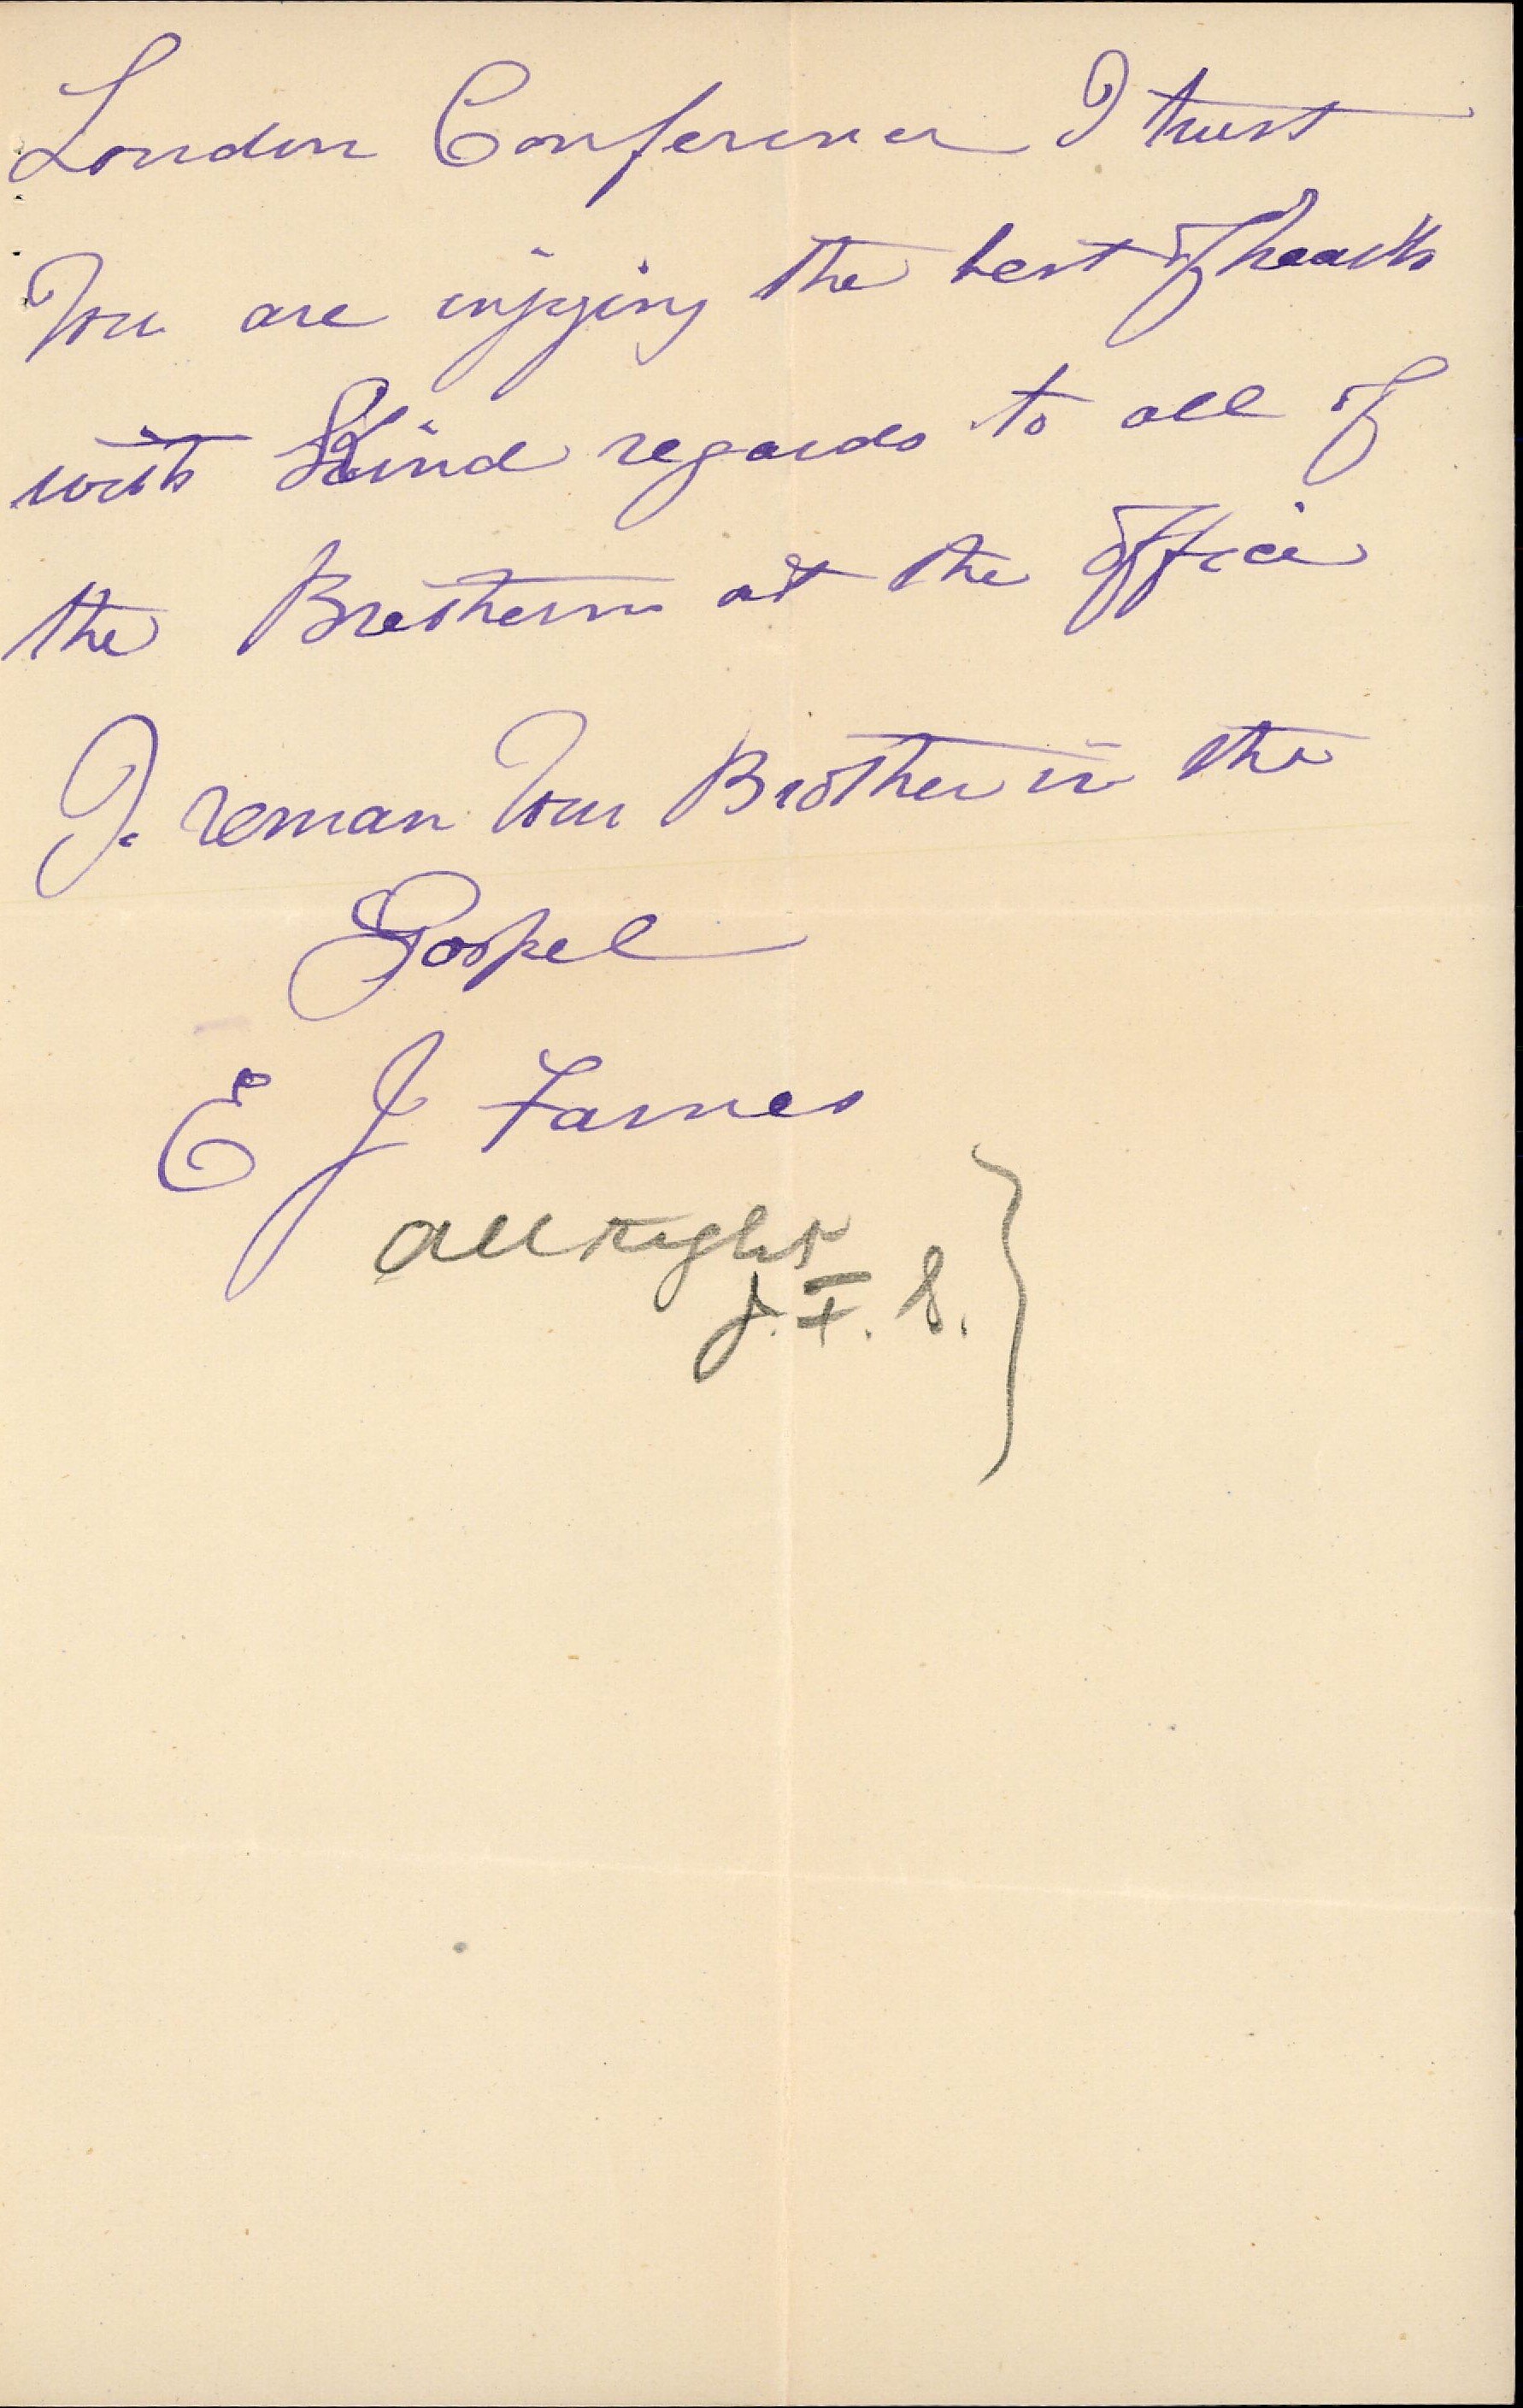 London Conference I trust
You are injoying the best of health
with Kind regards to all of
the Brethern at the office
I reman Your Brother in the
Gospel
E J Farnes
All right
J. F. S.